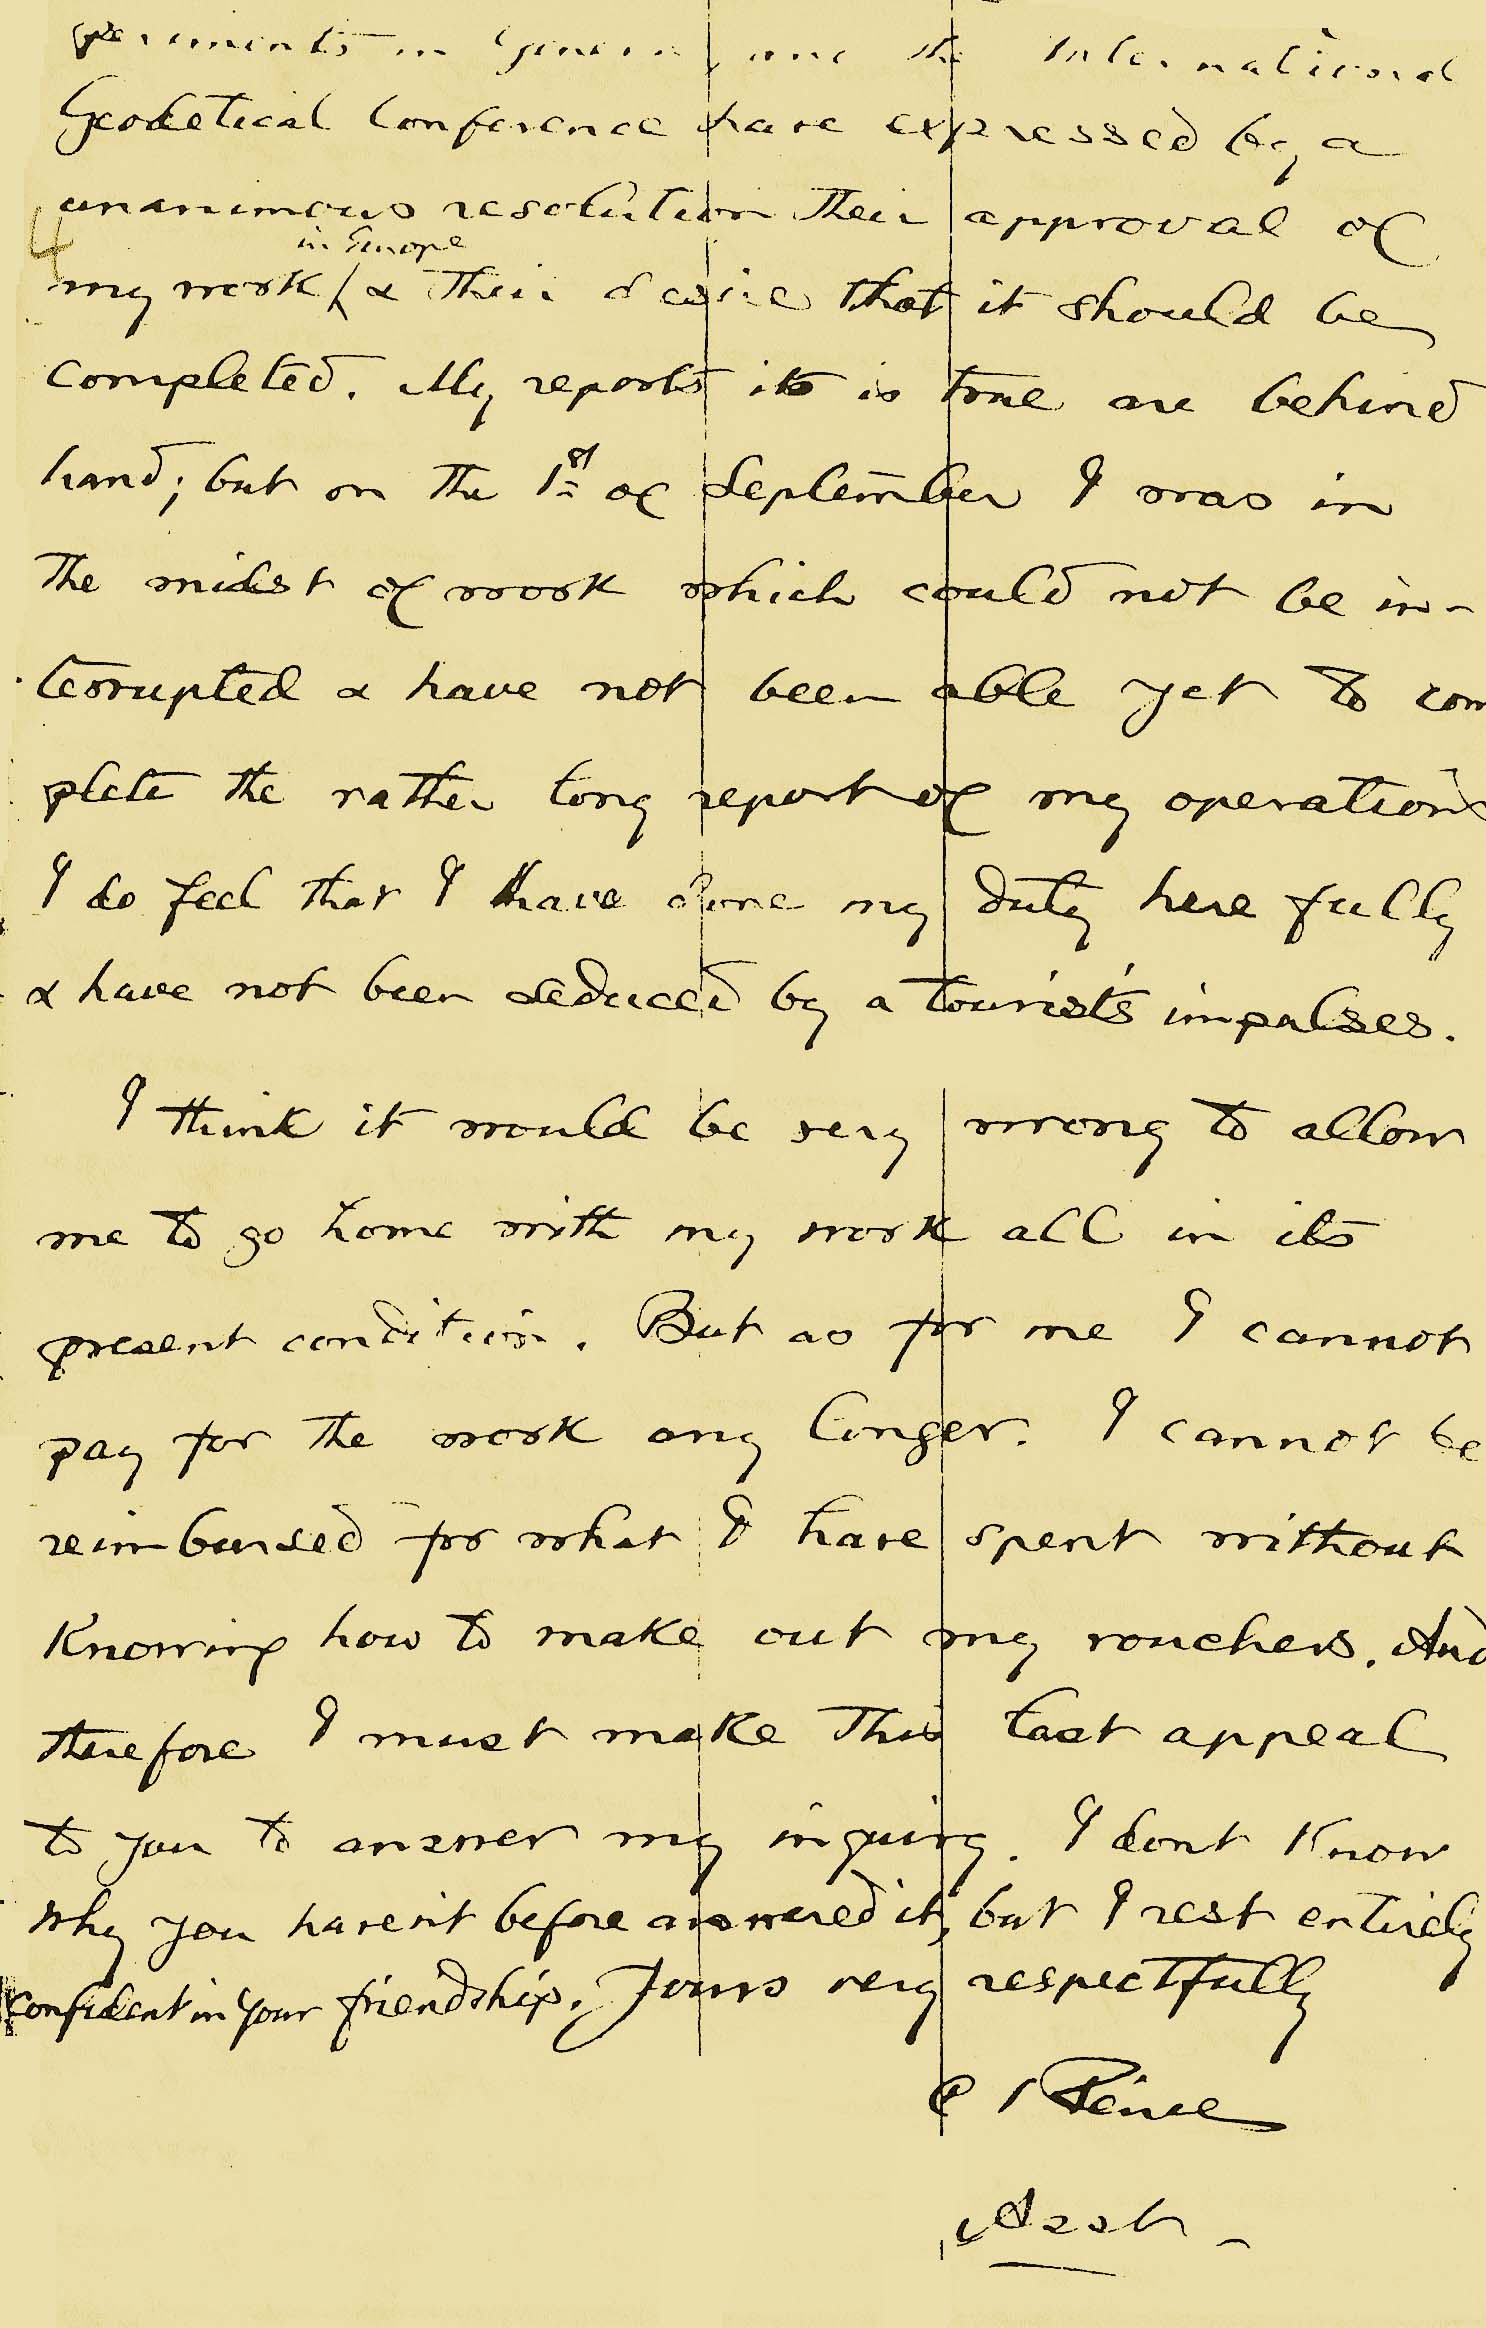 periments in Geneva, and the International
Geodetical Conference have expressed by a
unanimous resolution their approval of
4
in Europe
my work & their desire that it should be
completed. My reports it is true are behind
hand; but on the 1st of September I was in
the midst of work which could not be in-
terrupted & have not been able yet to com
plete the rather long report of my operations
I do feel that I have done my duty here fully
& have not been seduced by a tourist's impulses.
I think it would be very wrong to allow
me to go home with my work all in its
present condition. But as for me I cannot
pay for the work any longer. I cannot be
reimbursed for what I have spent without
knowing how to make out my vouchers. And
therefore I must make this last appeal
to you to answer my inquiry. I dont know
why you haven't before answered it, but I rest entirely
confident in your friendship. Yours very respectfully
C S Peirce
Asst